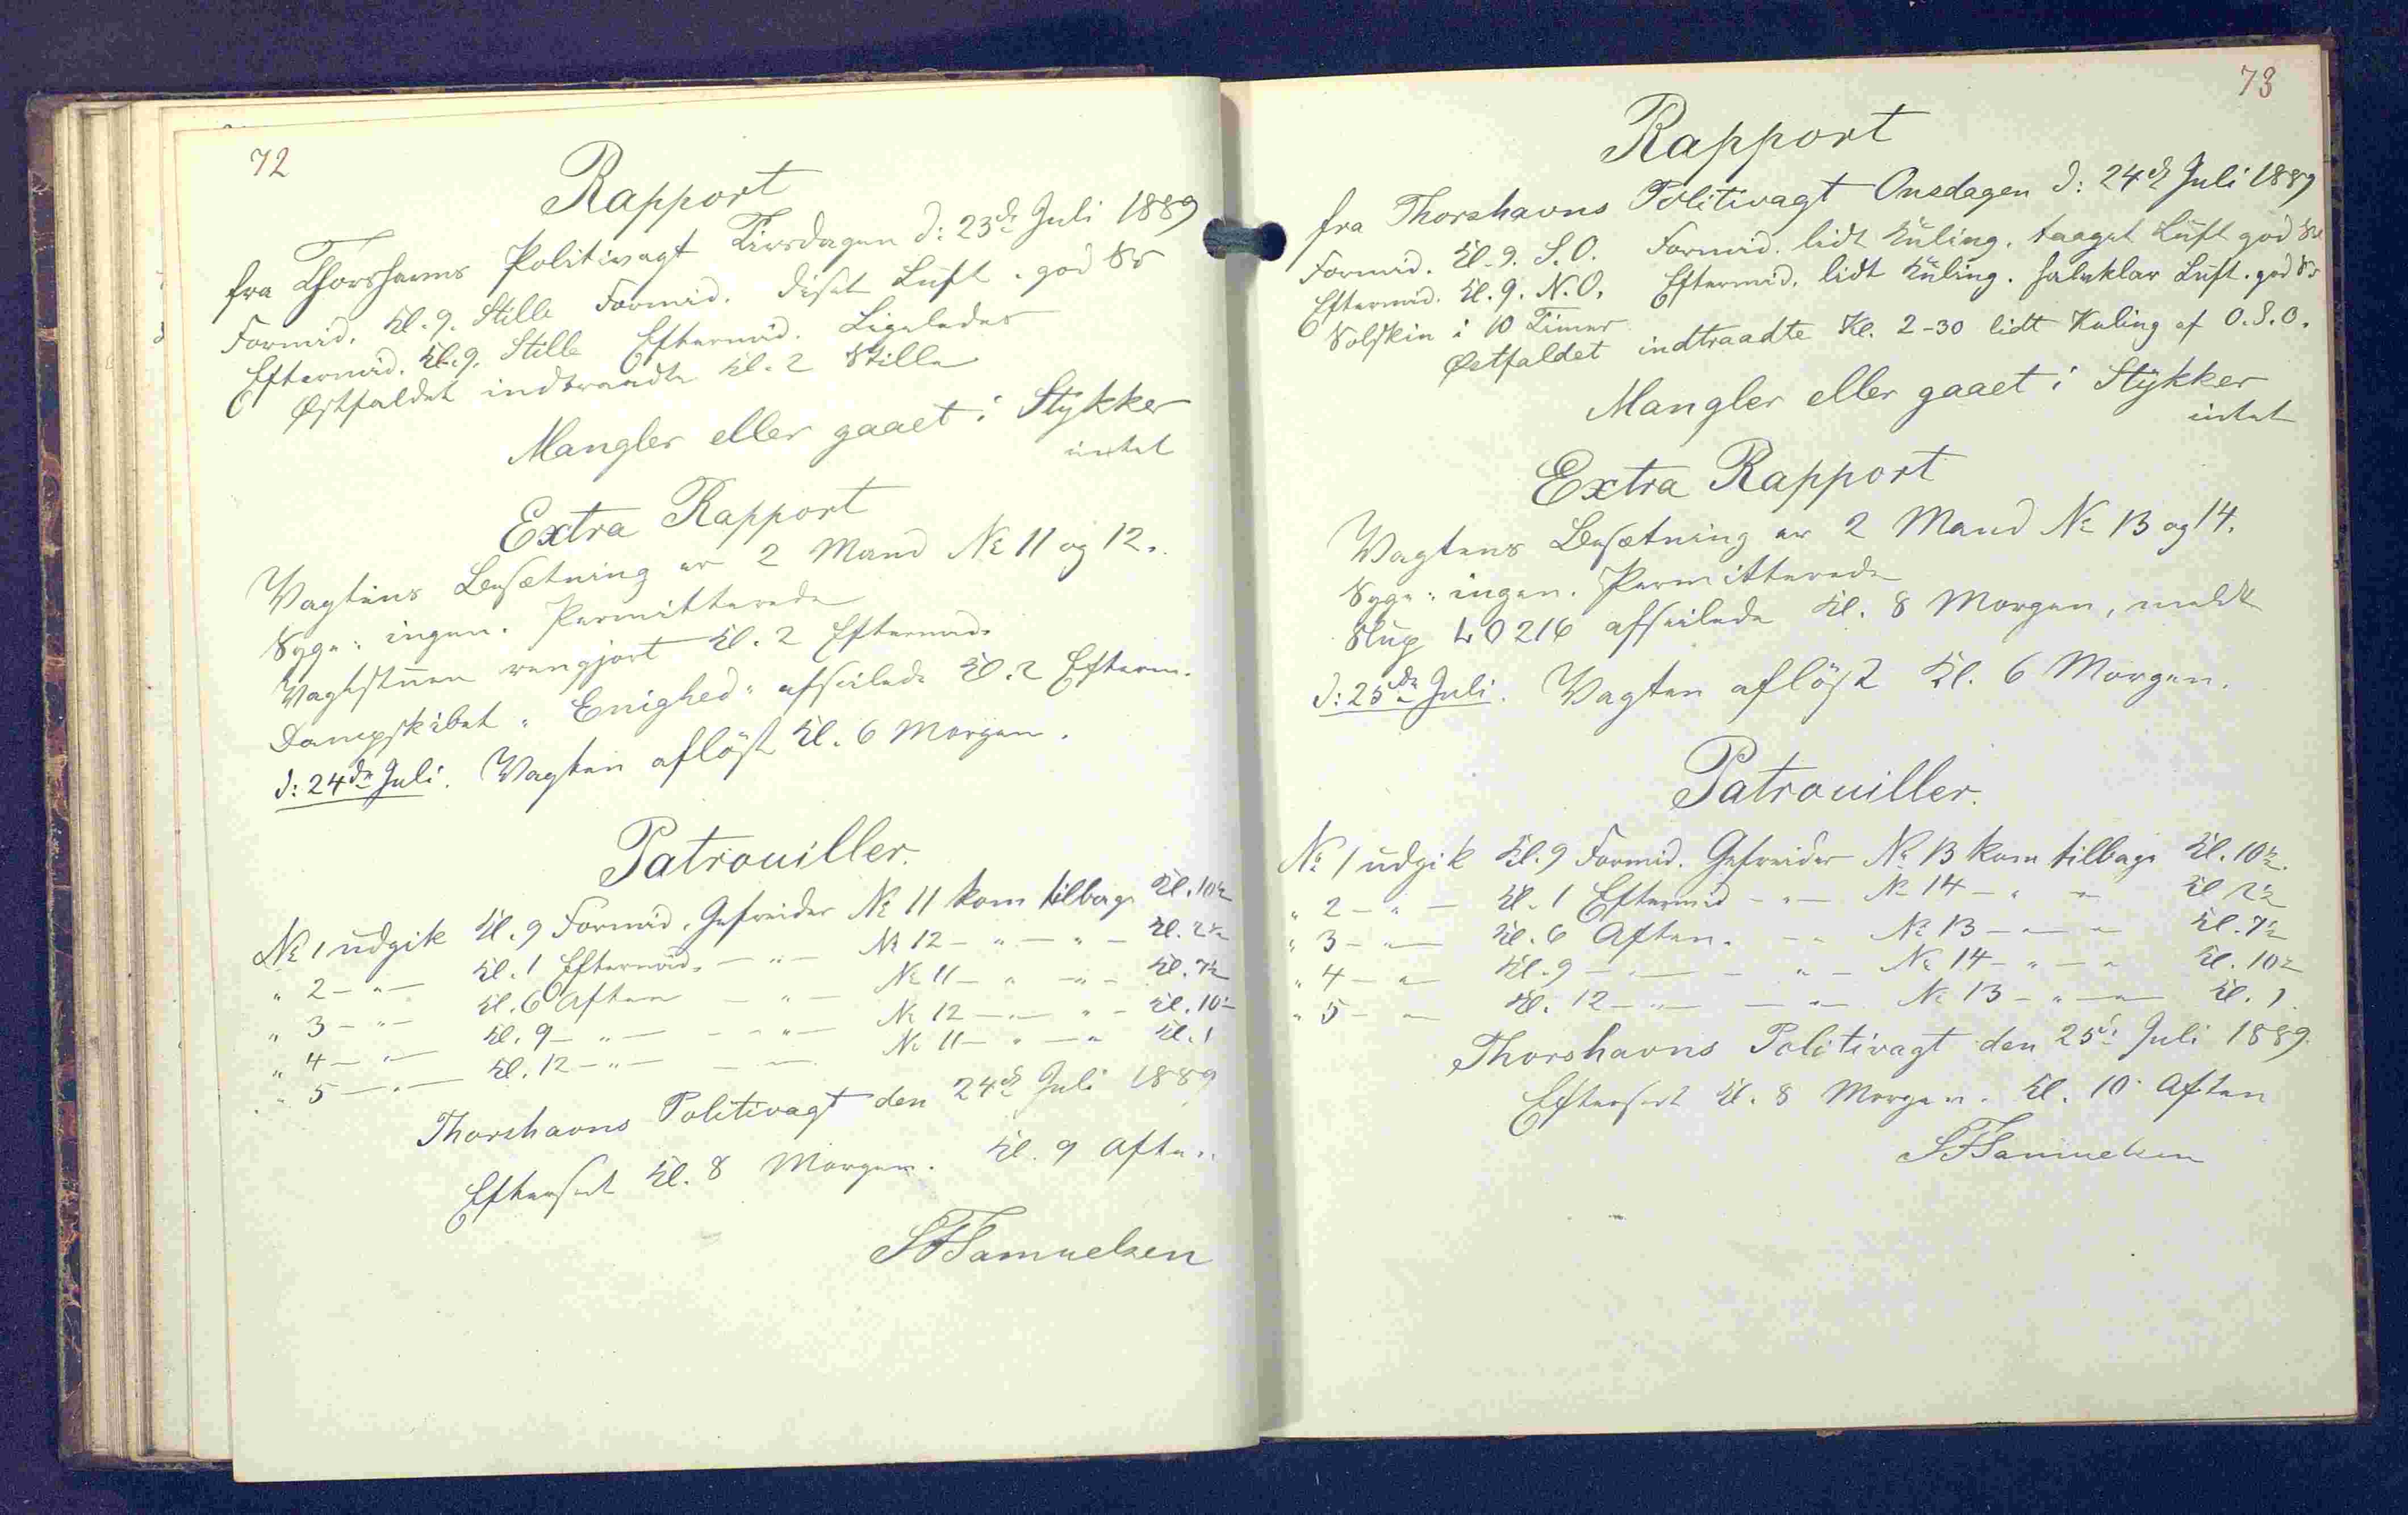 72
Rapport
fra Thorshavns Politivagt Tirsdagen d: 23de Juli 1889
Formid. Kl. 9. Stille Formid. diset Luft. god Sr
Eftermid. Kl. 9. Stille Eftermid. Ligeledes
Østfaldet indtraadte Kl. 2 Stille
Mangler eller gaaet i Stykker
intet
Extra Rapport
Vagtens Besætning er 2 Mand No 11 og 12.
Syge: ingen. Permitterede
Vagtstuen rengjort Kl. 2 Eftermid.
Dampskibet "Enighed" afseilede Kl. 2 Efterm.
d: 24de Juli. Vagten aflöst Kl. 6 Morgen.
Patrouiller.
No 1 udgik Kl. 9 Formid. Gefreider No 11 kom tilbage Kl. 10½
" 2 — " — Kl. 1 Eftermid. — " — No 12 — " — " — Kl. 2½
" 3 — " — Kl. 6 Aften — " — No 11 — " — " — Kl. 7½
" 4 — " — Kl. 9 — " — — " — No 12 — " — " — Kl. 10½
" 5 — " — Kl. 12 — " — — " — No 11 — " — " Kl. 1
Thorshavns Politivagt den 24de Juli 1889
Efterset Kl. 8 Morgen. Kl. 9 Aften
SFSamuelsen
73
Rapport
fra Thorshavns Politivagt Onsdagen d: 24de Juli 1889
Formid. Kl. 9. S.O. Formid. lidt Kuling. taaget Luft god Sr
Eftermid. Kl. 9. N.O. Eftermid. lidt Kuling. halvklar Luft. god Sr
Solskin i 10 Timer
Østfaldet indtraadte Kl. 2-30 lidt Kuling af O.S.O.
Mangler eller gaaet i Stykker
intet
Extra Rapport
Vagtens Besætning er 2 Mand No 13 og 14.
Syge: ingen. Permitterede
Slup 216 afseilede Kl. 8 Morgen, meldt
d: 25de Juli. Vagten aflöst Kl. 6 Morgen.
Patrouiller.
No 1 udgik Kl. 9 Formid. Gefreider No 13 kom tilbage Kl. 10½.
" 2 — " — Kl. 1 Eftermid — " — No 14 — " — " Kl 2½
" 3 — " — Kl. 6 Aften. — " No 13 — " — " Kl. 7½
" 4 — " — Kl. 9 — " — — " — No 14 — " — " Kl. 10½
" 5 — " — Kl. 12 — " — — " — No 13 — " — " Kl. 1.
Thorshavns Politivagt den 25de Juli 1889.
Efterset Kl. 8 Morgen. Kl. 10 Aften
SFSamuelsen